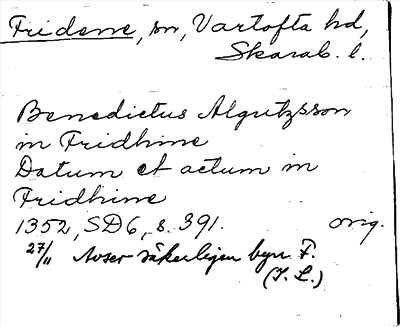 Fridene, sn, Vartofta hd,
Skarab. l.
Benedictus Algutzsson
in Fridhine
Datum et actum in
Fridhine
1352, SD6, s. 391. orig.
27/11 Avser säkerligen byn F.
(I. L.)